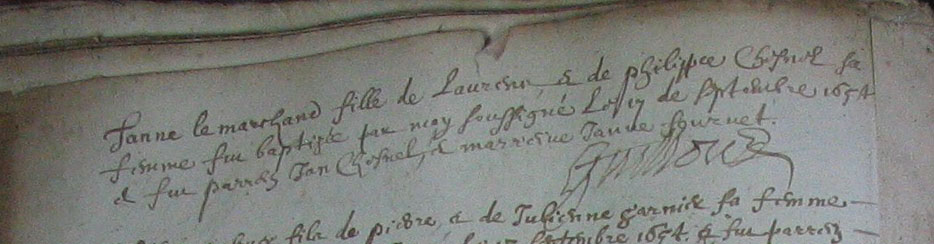 Janne le marchand fille de Laurens, & de philippe Chesnel sa
femme fut baptisée par moy soussigné le de septembre 1654
& fut parrein Jan Chesnel, & marreine Janne fournet.
fils de pierre, & de Julienne garnier sa femme
septembre 1654. & fut parrein